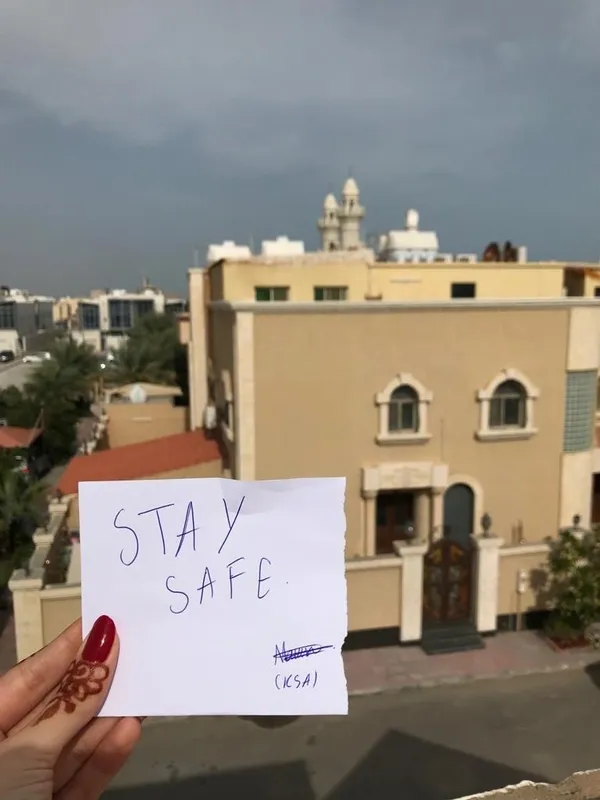 STAY
SAFE.
(KSA)